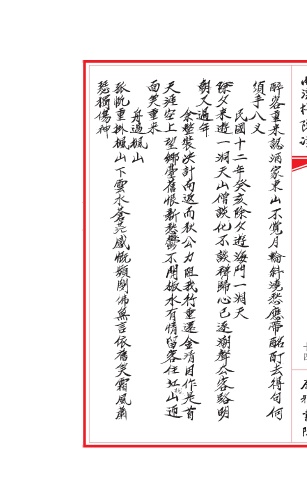 醉客重来認酒家東山不覺月輪斜澆愁應帶酩酊去得句何
須手八叉
民國十二年癸亥除夕遊海門一洞天
除夕来遊一洞天山僧談化不談禪歸心已逐潮聲去客路明
朝又過年
余整裝决計向返而秋公力阻我行重還金清因作是首
天涯空上望鄉臺舊恨新愁鬱不開椒水有情留客住虹山迎
面笑重来
舟過楓山
孤帆重掛楓山下雲水蒼茫感慨頻閉佛無言依舊笑霜風蕭
瑟獨傷神